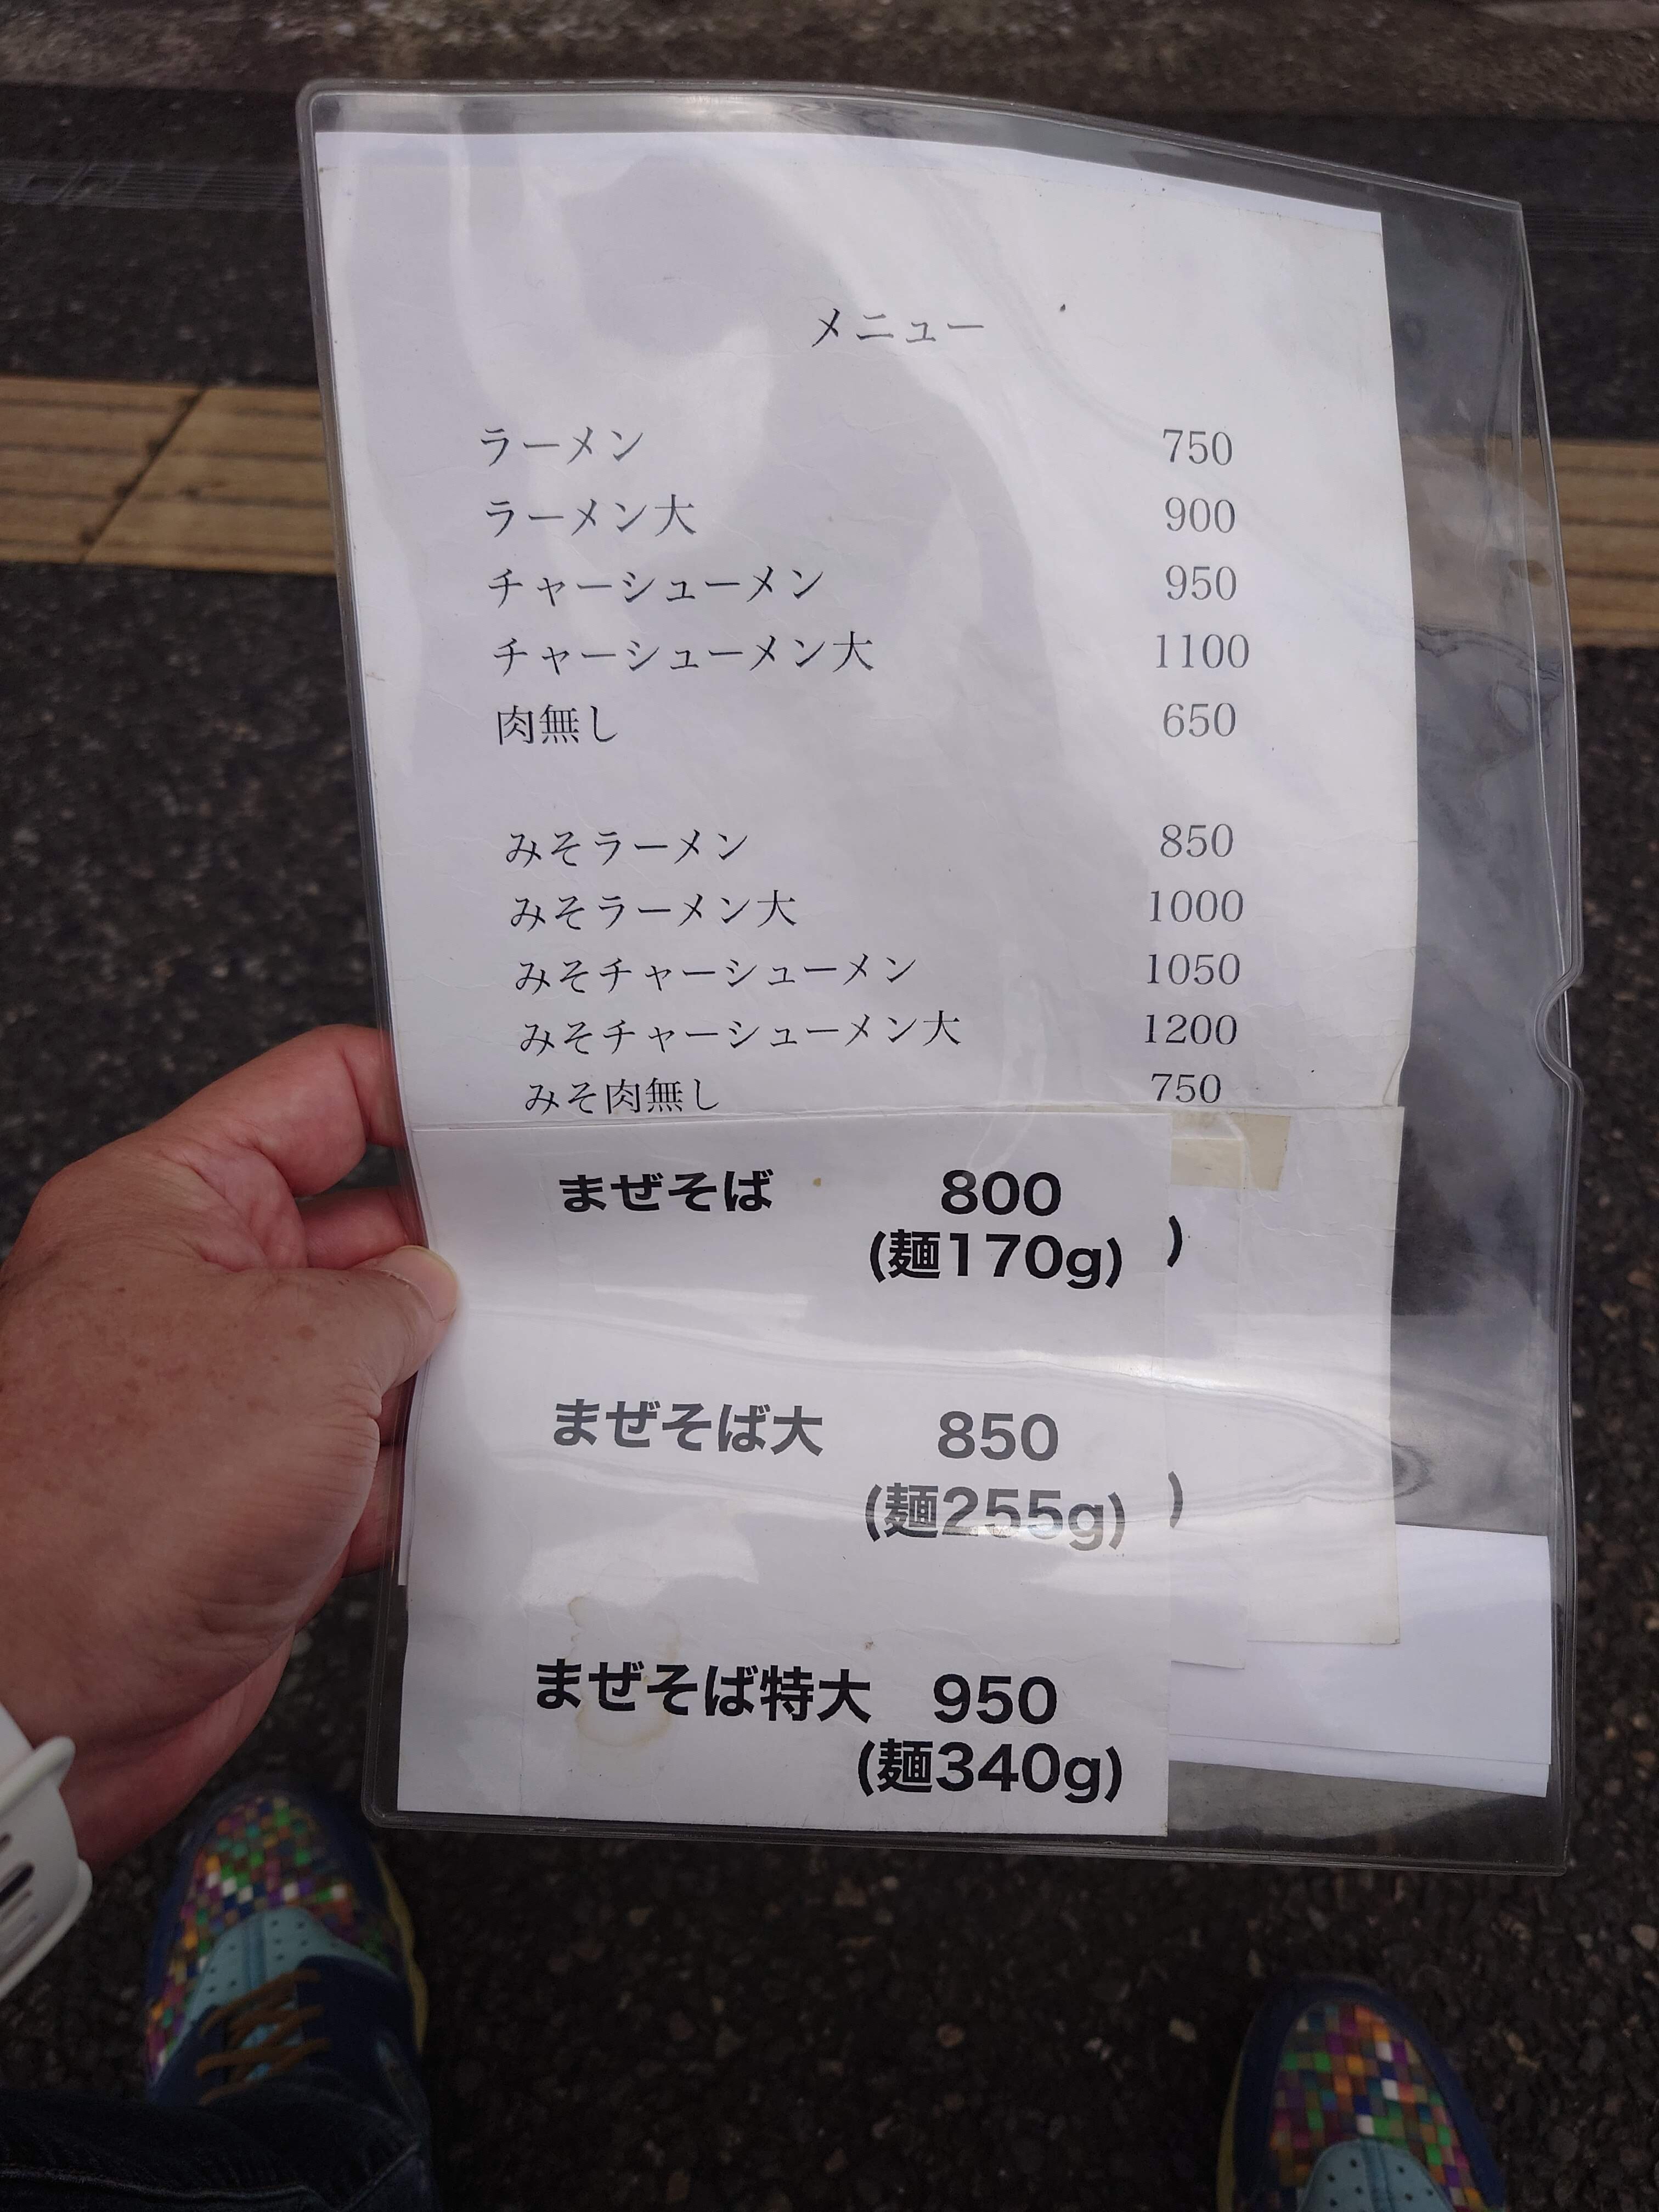 メニュー
ラーメン 750
ラーメン大 900
チャーシューメン 950
チャーシューメン大 1100
肉無し 650
みそラーメン 850
みそラーメン大 1000
みそチャーシューメン 1050
みそチャーシューメン大 1200
みそ肉無し 750
まぜそば 800
(麺170g) )
まぜそば大 850
(麺255g) )
まぜそば特大 950
(麺340g)